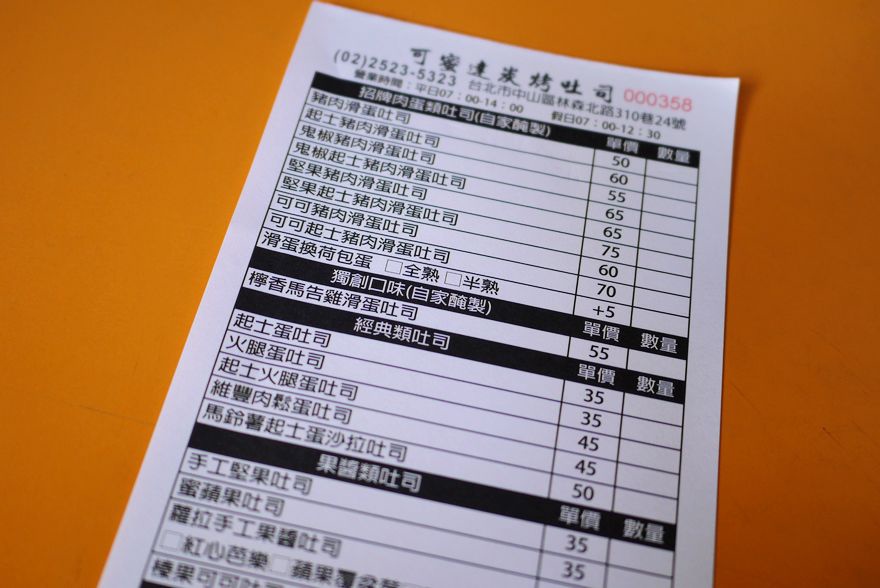 可蜜達炭烤吐司
(02)2523-5323 台北市中山區林森北路310巷24號 000358
營業時間：平日07：00-14：00 假日07：00-12：30
招牌肉蛋類吐司(自家醃製) 單價 數量
豬肉滑蛋吐司 50
起士豬肉滑蛋吐司 60
鬼椒豬肉滑蛋吐司 55
鬼椒起士豬肉滑蛋吐司 65
堅果豬肉滑蛋吐司 65
堅果起士豬肉滑蛋吐司 75
可可豬肉滑蛋吐司 60
可可起士豬肉滑蛋吐司 70
滑蛋換荷包蛋 □全熟 □半熟 +5
獨創口味(自家醃製) 單價 數量
檸香馬告雞滑蛋吐司 55
經典類吐司 單價 數量
起士蛋吐司 35
火腿蛋吐司 35
起士火腿蛋吐司 45
維豐肉鬆蛋吐司 45
馬鈴薯起士蛋沙拉吐司 50
果醬類吐司 單價 數量
手工堅果吐司 35
蜜蘋果吐司 35
蘿拉手工果醬吐司
□紅心芭樂 □蘋果覆盆莓
榛果可可吐司